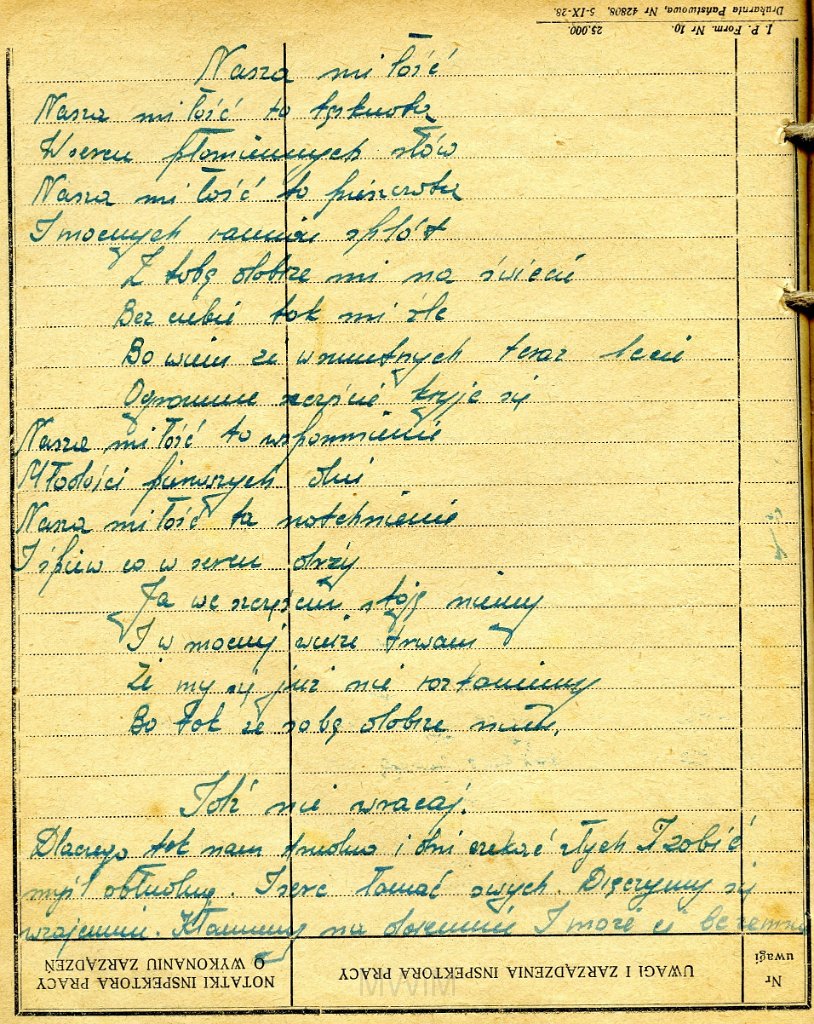 I. P. Form. Nr 10. 25.000.
Drukarnia Państwowa, Nr 42808. 5-IX-28.
Nasza miłość
Nasza miłość to tęsknota
W sercu płomiennych słów
Nasza miłość to pieszczota
I mocnych ramion splót
Z tobą dobrze mi na świecie
Bez ciebie tak mi źle
Bo wiem że w smutnych teraz lecie
Ogromne szczęście kryje się
Nasza miłość to wspomnienie
Młodości pierwszych dni
Nasza miłość to natchnienie
I śpiew co w sercu drży
Ja we szczęściu stoję niemy
I w mocnej wierze trwam
Że my się już nie roztaniemy
Bo tak ze sobą dobrze nam.
Idź nie wracaj.
Dlaczego tak nam trudno i dni czekać złych I zabić
myśl obłudną. I serc łamać swych. Dręczymy się
wzajemnie. Kłamiemy na daremnie I może ci beze mnie
NOTATKI INSPEKTORA PRACY
O WYKONANIU ZARZĄDZEŃ
UWAGI I ZARZĄDZENIA INSPEKTORA PRACY
Nr
uwagi
MWIM